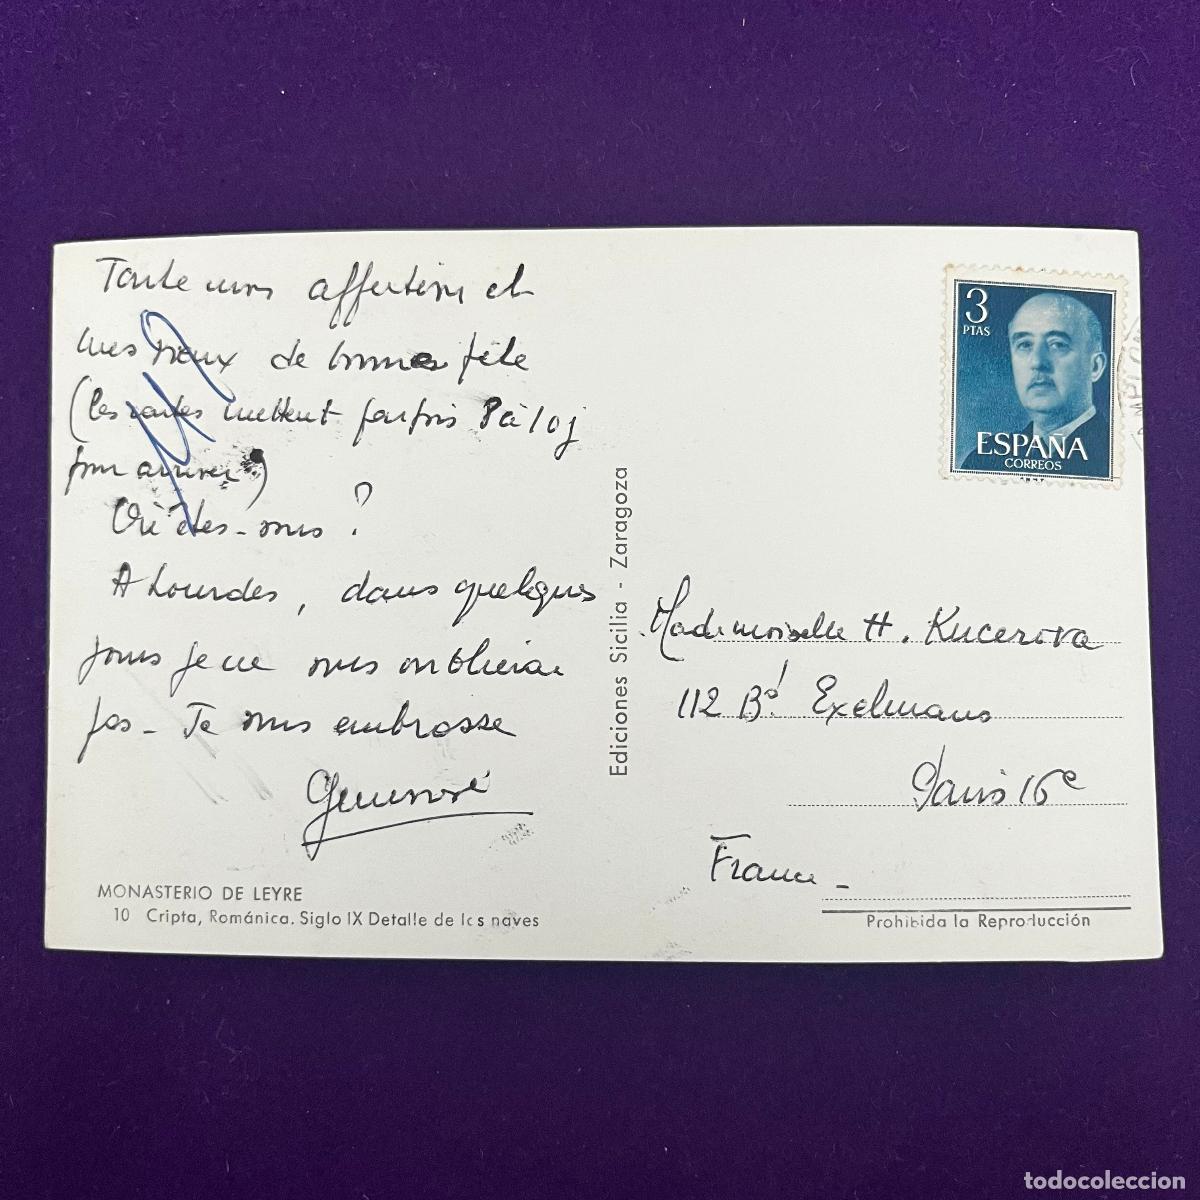 Toute mon affection et
mes vœux de bonne fête
(les cartes mettent parfois 8 à 10 j
pour arriver)
Où êtes-vous ?
A Lourdes, dans quelques
jours je ne vous oublierai
pas - Je vous embrasse
MONASTERIO DE LEYRE
10 Cripta, Románica. Siglo IX Detalle de las naves
Ediciones Sicilia - Zaragoza
3
PTAS
ESPAÑA
CORREOS
Mademoiselle H. Kucerova
112 Bd Exelmans
Paris 16e
France -
Prohibida la Reproducción
todocoleccion